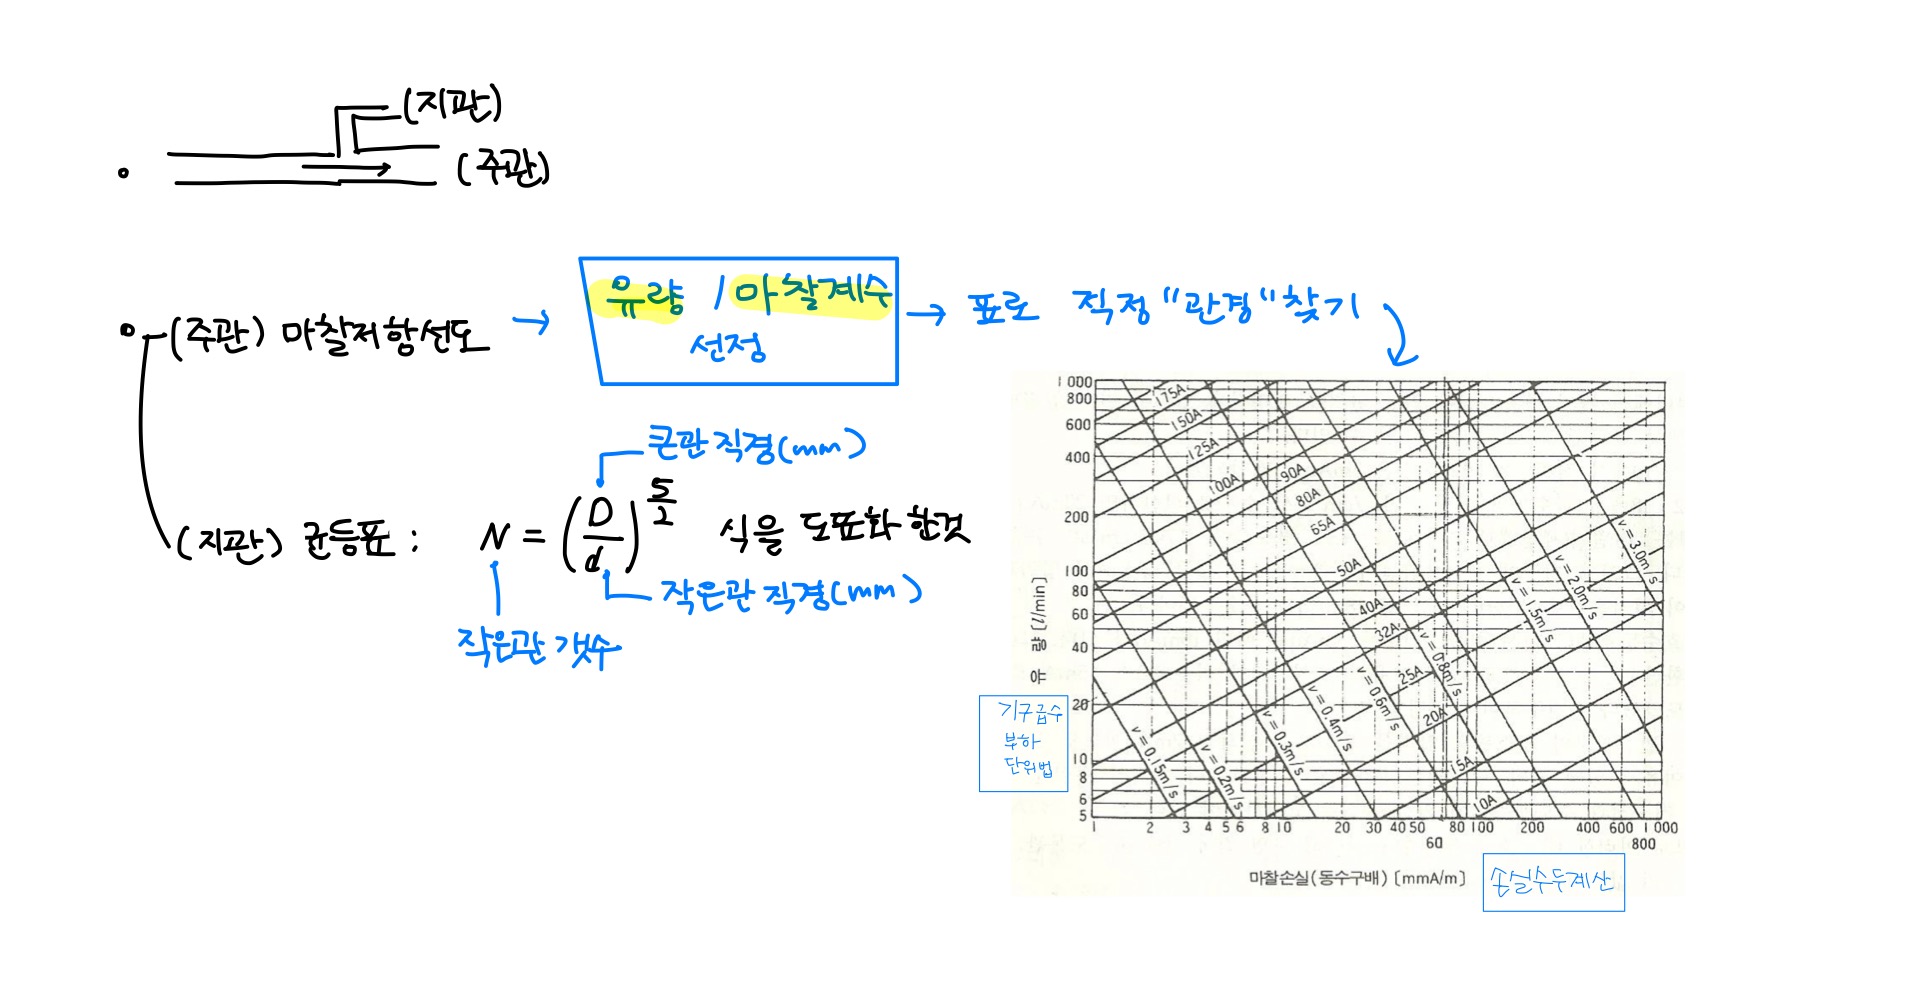 (지관)
(주관)
(주관) 마찰저항선도
유량 / 마찰계수
선정
표로 적정 "관경" 찾기
큰관 직경(mm)
(지관) 균등표 : N = (D/d)^5/2 식을 도표화 한것
작은관 직경(mm)
작은관 갯수
1 000
800
600
400
200
100
80
60
40
20
10
8
6
5
유 량 [l/min]
175A
150A
125A
100A
90A
80A
65A
50A
40A
32A
25A
20A
15A
10A
v = 0.15m/s
v = 0.2m/s
v = 0.3m/s
v = 0.4m/s
v = 0.6m/s
v = 0.8m/s
v = 1.5m/s
v = 2.0m/s
v = 3.0m/s
기구급수
부하
단위법
1 2 3 4 5 6 8 10 20 30 40 50 80 100 200 400 600 1 000
60 800
마찰손실(동수구배) [mmA/m]
손실수두계산